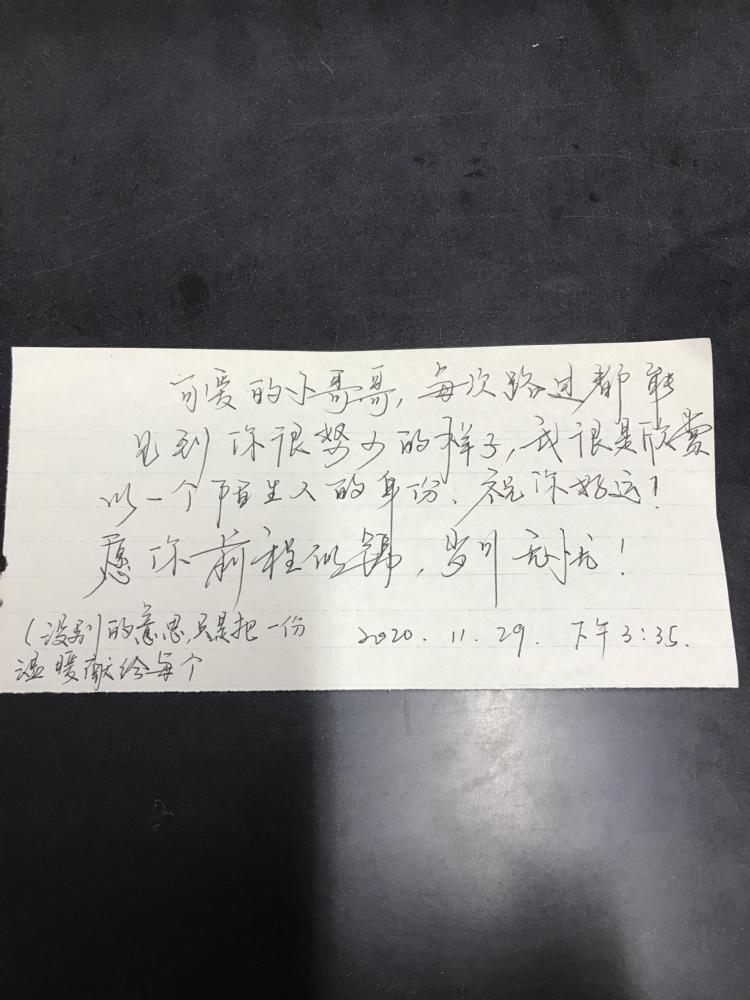 可爱的小哥哥，每次路过都能
见到你很努力的样子，我很是欣赏
以一个陌生人的身份、祝你好运！
愿你前程似锦，岁月无忧！
（没别的意思，只是把一份
温暖献给每个
2020.11.29. 下午3:35.